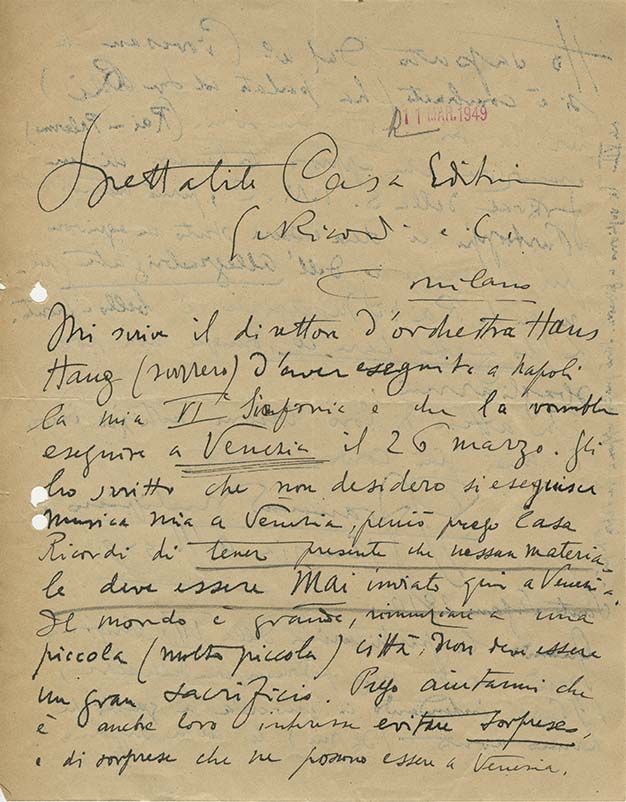 11 MAR. 1949
Spettabile Casa Editrice
G. Ricordi e C.
Milano
Mi scrive il direttore d'orchestra Hans
Haug (svizzero) d'aver eseguita a Napoli
la mia VIª Sinfonia e che la vorrebbe
eseguire a Venezia il 26 marzo. Gli
ho scritto che non desidero si eseguisca
musica mia a Venezia, perciò prego Casa
Ricordi di tener presente che nessun materia-
le deve essere MAI inviato qui a Venezia.
Il mondo è grande, rinunziare a una
piccola (molto piccola) città, non deve essere
un gran sacrificio. Prego aiutarmi che
è anche loro interesse evitare sorprese,
e di sorprese che ne possono essere a Venezia.